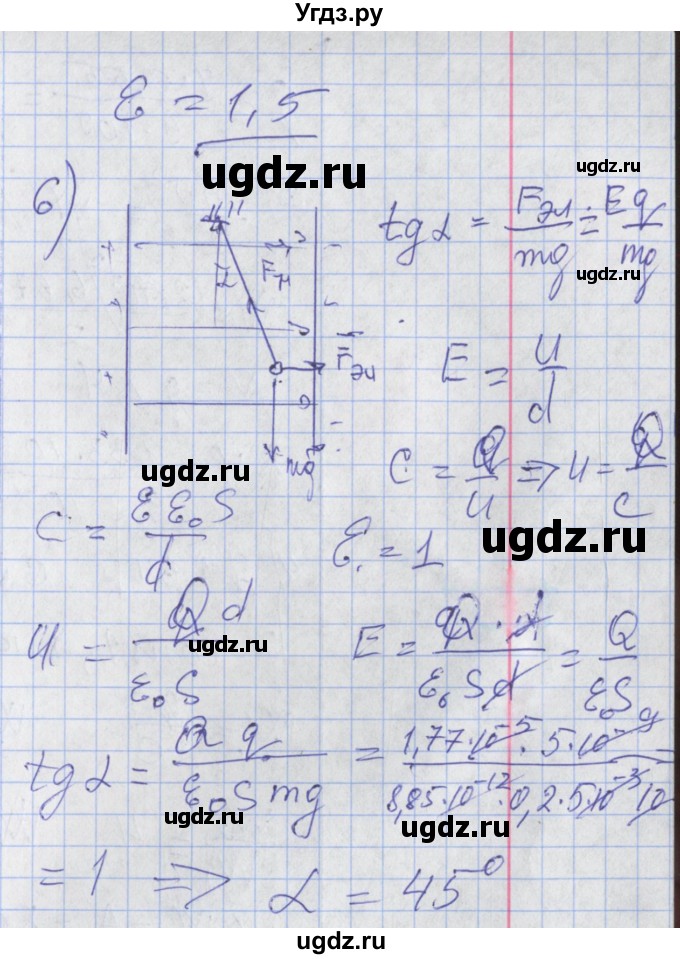 Угдз.ру
ε = 1,5
ugdz.ru
6)
tg α = Fэл/mg = Eq/mg
ugdz.ru
+ -
l Fн
+ -
Fэл
E = U/d
+
mg
ugdz.ru
C = Q/U => U = Q/C
C = εε₀S/d
ε = 1
ugdz.ru
U = Qd/ε₀S
ugdz.ru
E = Q·d/ε₀Sd = Q/ε₀S
tg α = Qq/ε₀Smg = 1,77·10⁻⁵·5·10⁻⁹/8,85·10⁻¹²·0,2·5·10⁻³·10 =
ugdz.ru
= 1 => α = 45°
ugdz.ru